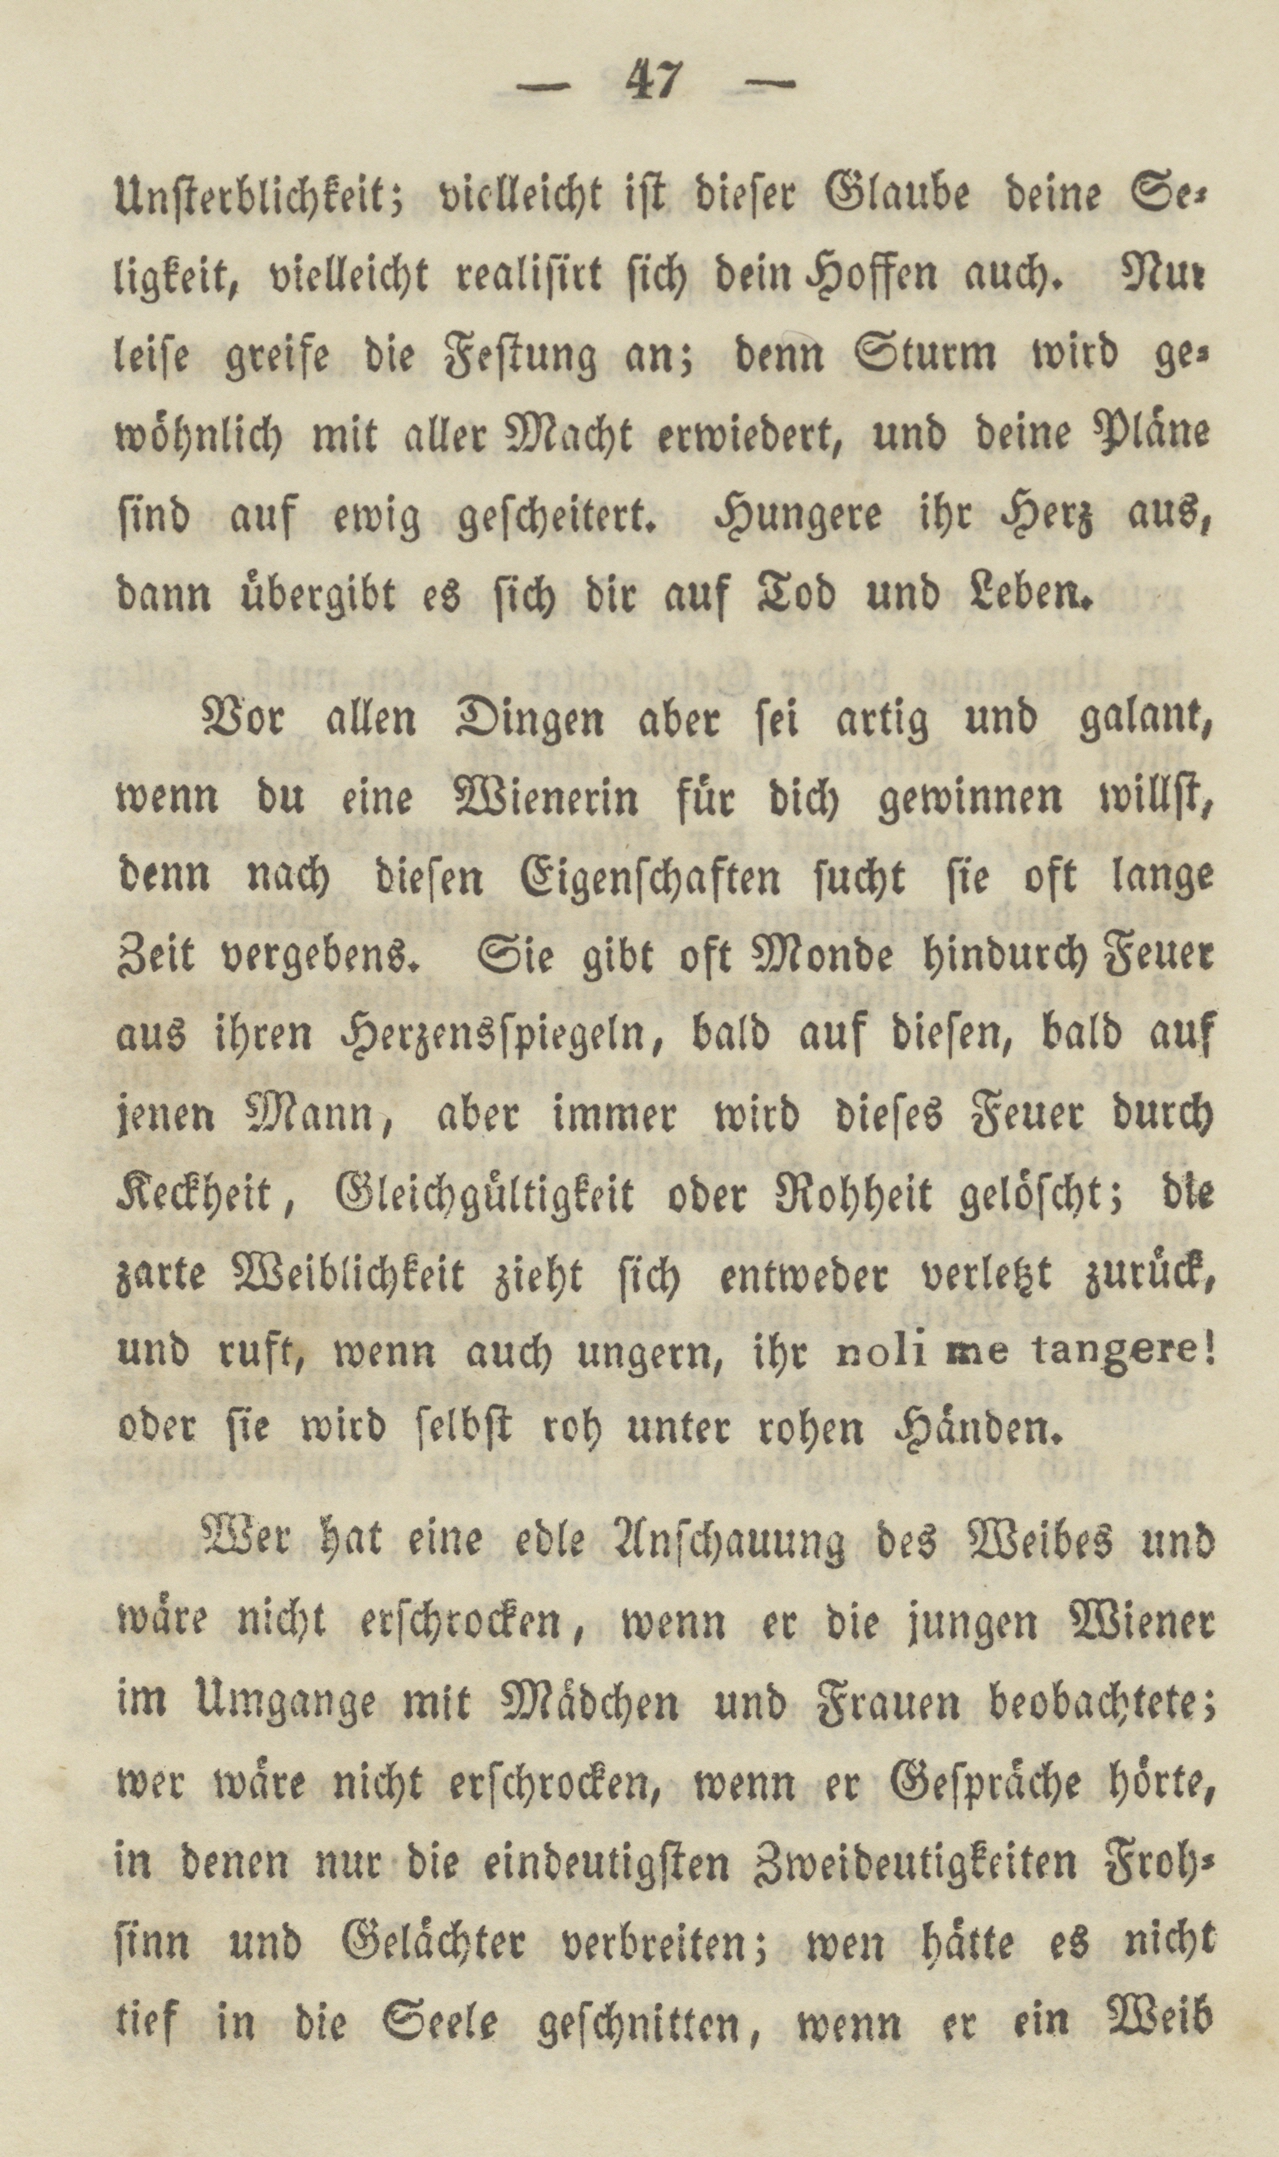 — 47 —
Unsterblichkeit; vielleicht ist dieser Glaube deine Se-
ligkeit, vielleicht realisirt sich dein Hoffen auch. Nur
leise greife die Festung an; denn Sturm wird ge-
wöhnlich mit aller Macht erwiedert, und deine Pläne
sind auf ewig gescheitert. Hungere ihr Herz aus,
dann übergibt es sich dir auf Tod und Leben.
Vor allen Dingen aber sei artig und galant,
wenn du eine Wienerin für dich gewinnen willst,
denn nach diesen Eigenschaften sucht sie oft lange
Zeit vergebens. Sie gibt oft Monde hindurch Feuer
aus ihren Herzensspiegeln, bald auf diesen, bald auf
jenen Mann, aber immer wird dieses Feuer durch
Keckheit, Gleichgültigkeit oder Rohheit gelöscht; die
zarte Weiblichkeit zieht sich entweder verletzt zurück,
und ruft, wenn auch ungern, ihr noli me tangere!
oder sie wird selbst roh unter rohen Händen.
Wer hat eine edle Anschauung des Weibes und
wäre nicht erschrocken, wenn er die jungen Wiener
im Umgange mit Mädchen und Frauen beobachtete;
wer wäre nicht erschrocken, wenn er Gespräche hörte,
in denen nur die eindeutigsten Zweideutigkeiten Froh-
sinn und Gelächter verbreiten; wen hätte es nicht
tief in die Seele geschnitten, wenn er ein Weib